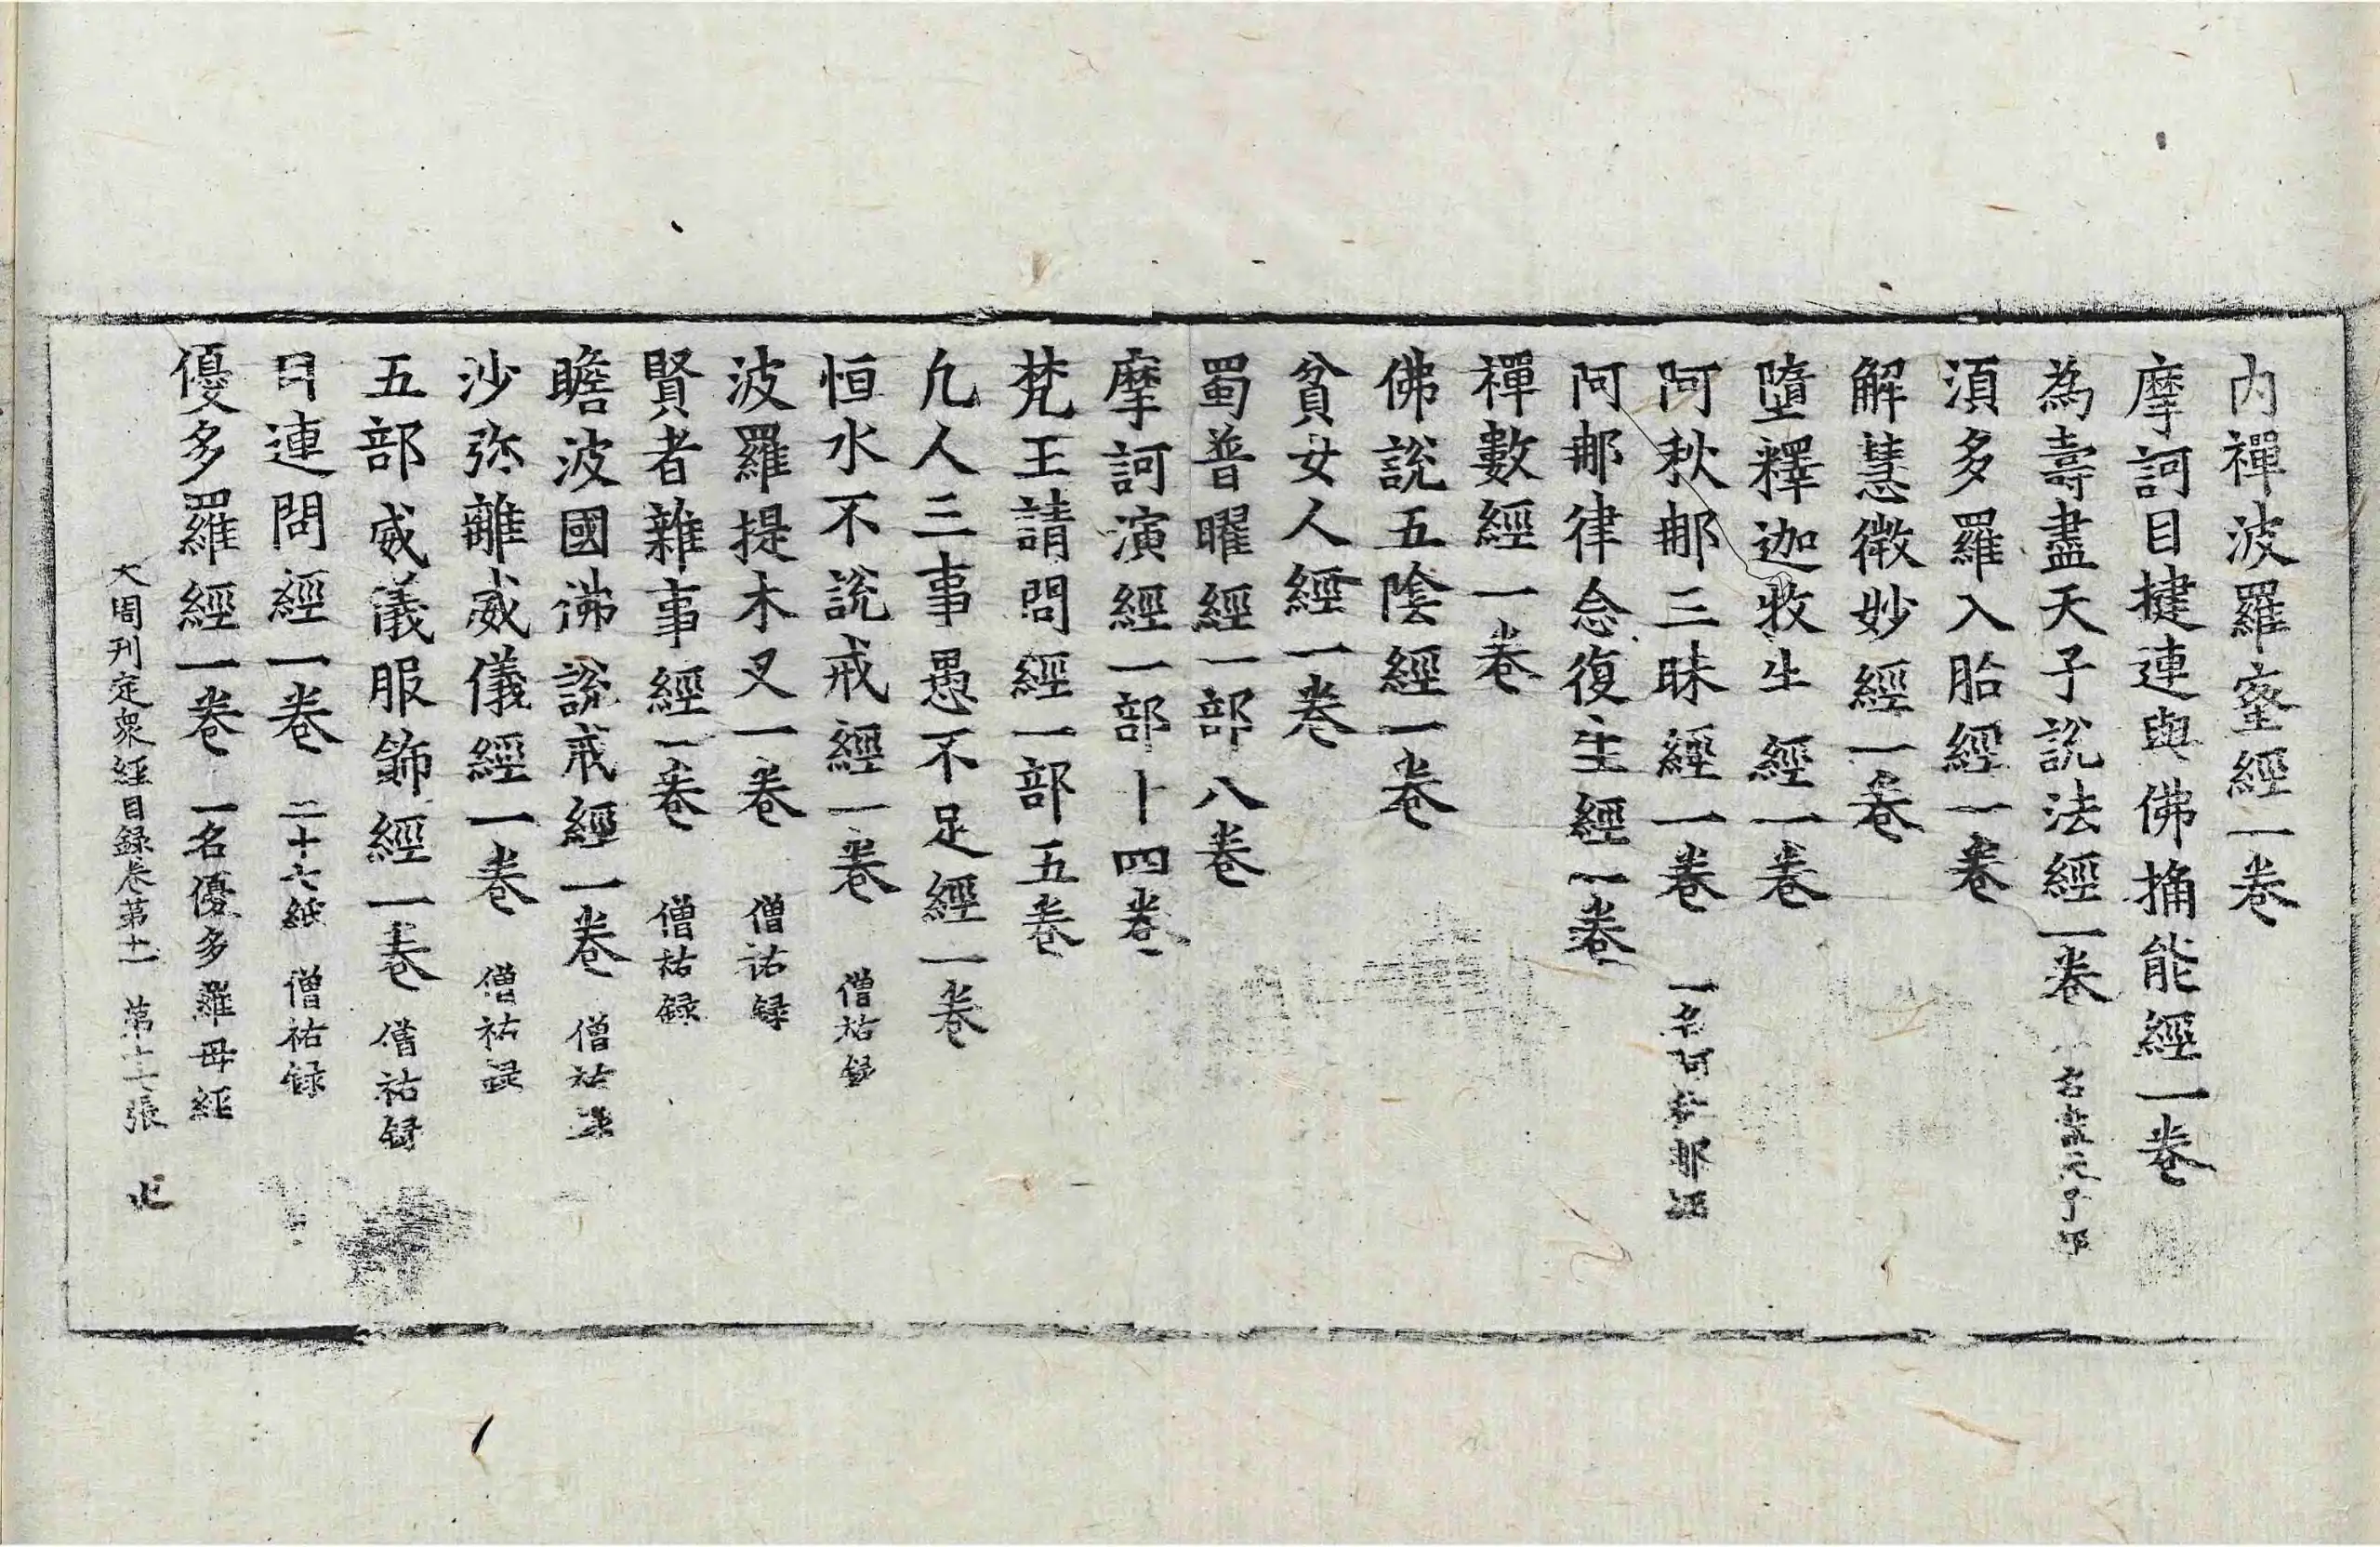 内禪波羅蜜經一卷
摩訶目揵連與佛捔能經一卷
為壽盡天子說法經一卷 名
湏多羅入胎經一卷
解慧微妙經一卷
墮釋迦牧牛經一卷
阿秋那三昧經一卷 一名阿 那
阿那律念復生經一卷
禪數經一卷
佛說五陰經一卷
貧女人經一卷
蜀普曜經一部八卷
摩訶演經一部十四卷
梵王請問經一部五卷
凡人三事愚不足經一卷
恒水不說戒經一卷 僧祐録
波羅提木叉一卷 僧祐録
賢者雜事經一卷 僧祐録
瞻波國佛說戒經一卷 僧祐
沙弥離威儀經一卷 僧祐録
五部威儀服飾經一卷 僧祐録
目連問經一卷 二十六紙 僧祐録
優多羅經一卷 一名優多羅母經
大周刊定衆經目録卷第十一 第十 張